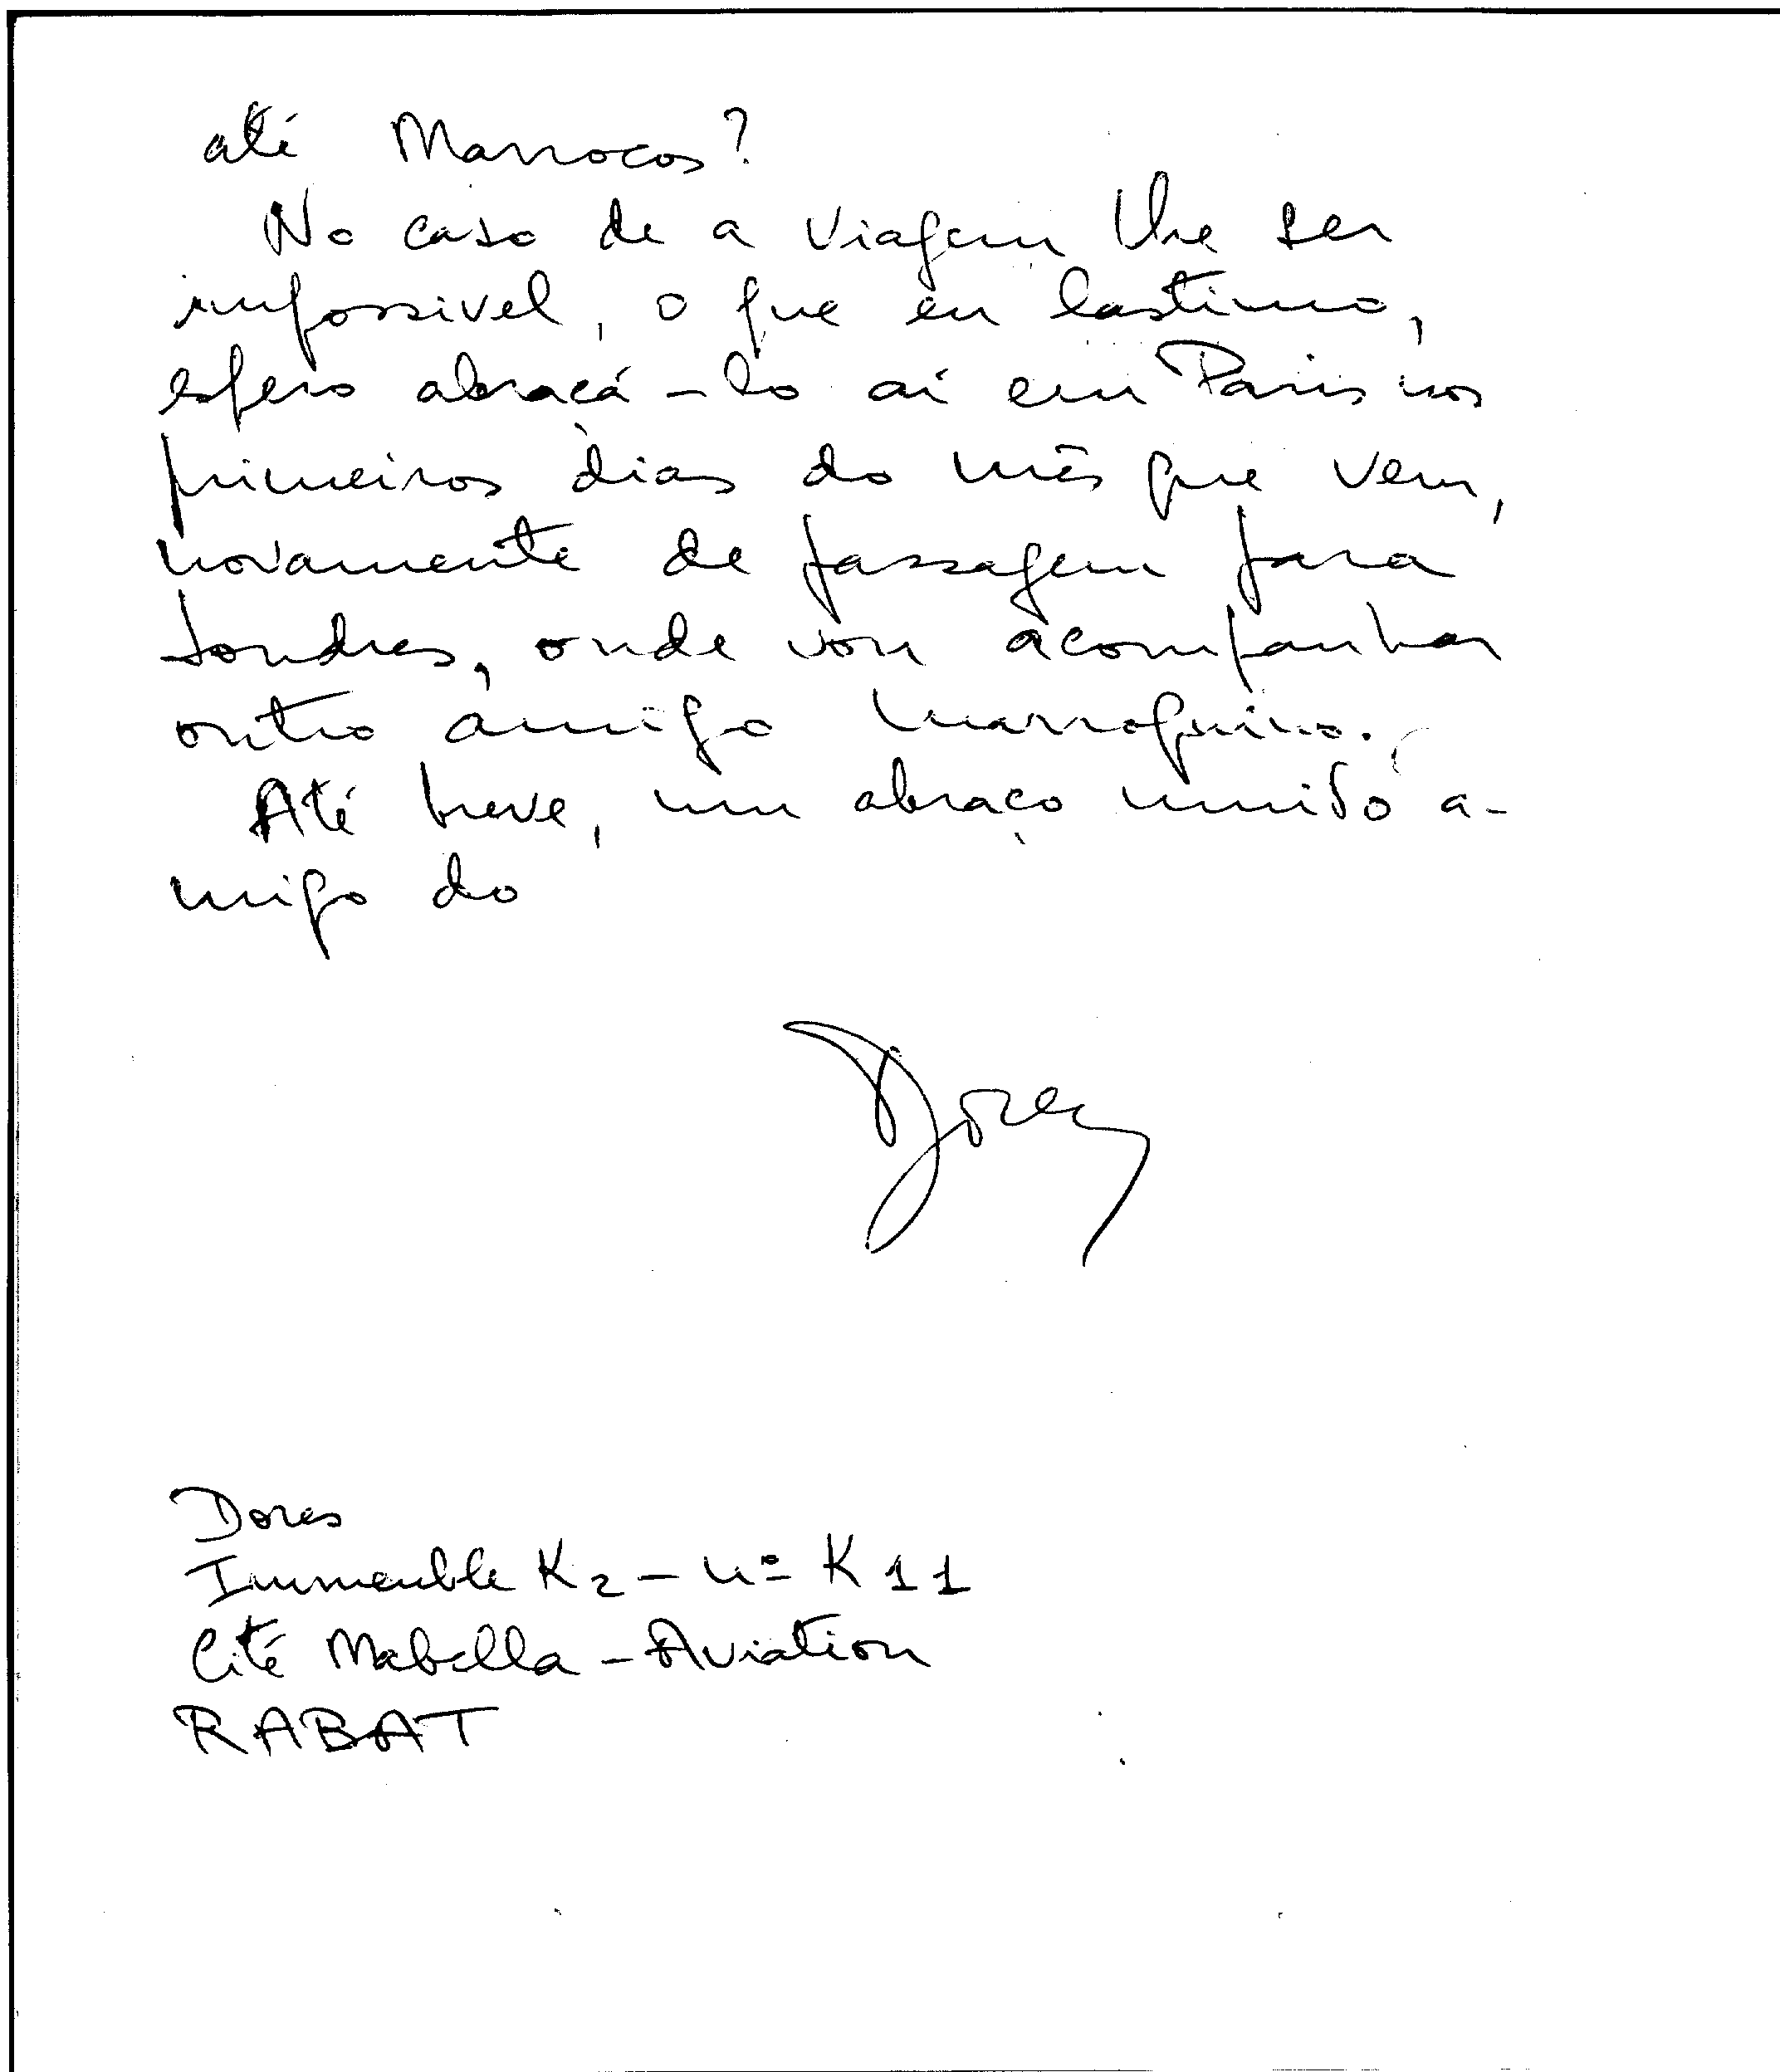 até Marrocos?
No caso de a viagem lhe ser
impossivel, o que eu lastimo,
espero abraçá-lo aí em Paris nos
primeiros dias do mês que vem,
novamente de passagem para
Londres, onde vou acompanhar
outro amigo marroquino.
Até breve, um abraço muito a-
migo do
Dores
Dores
Immeuble K2 - nº K 11
Cité Mabella - Aviation
RABAT